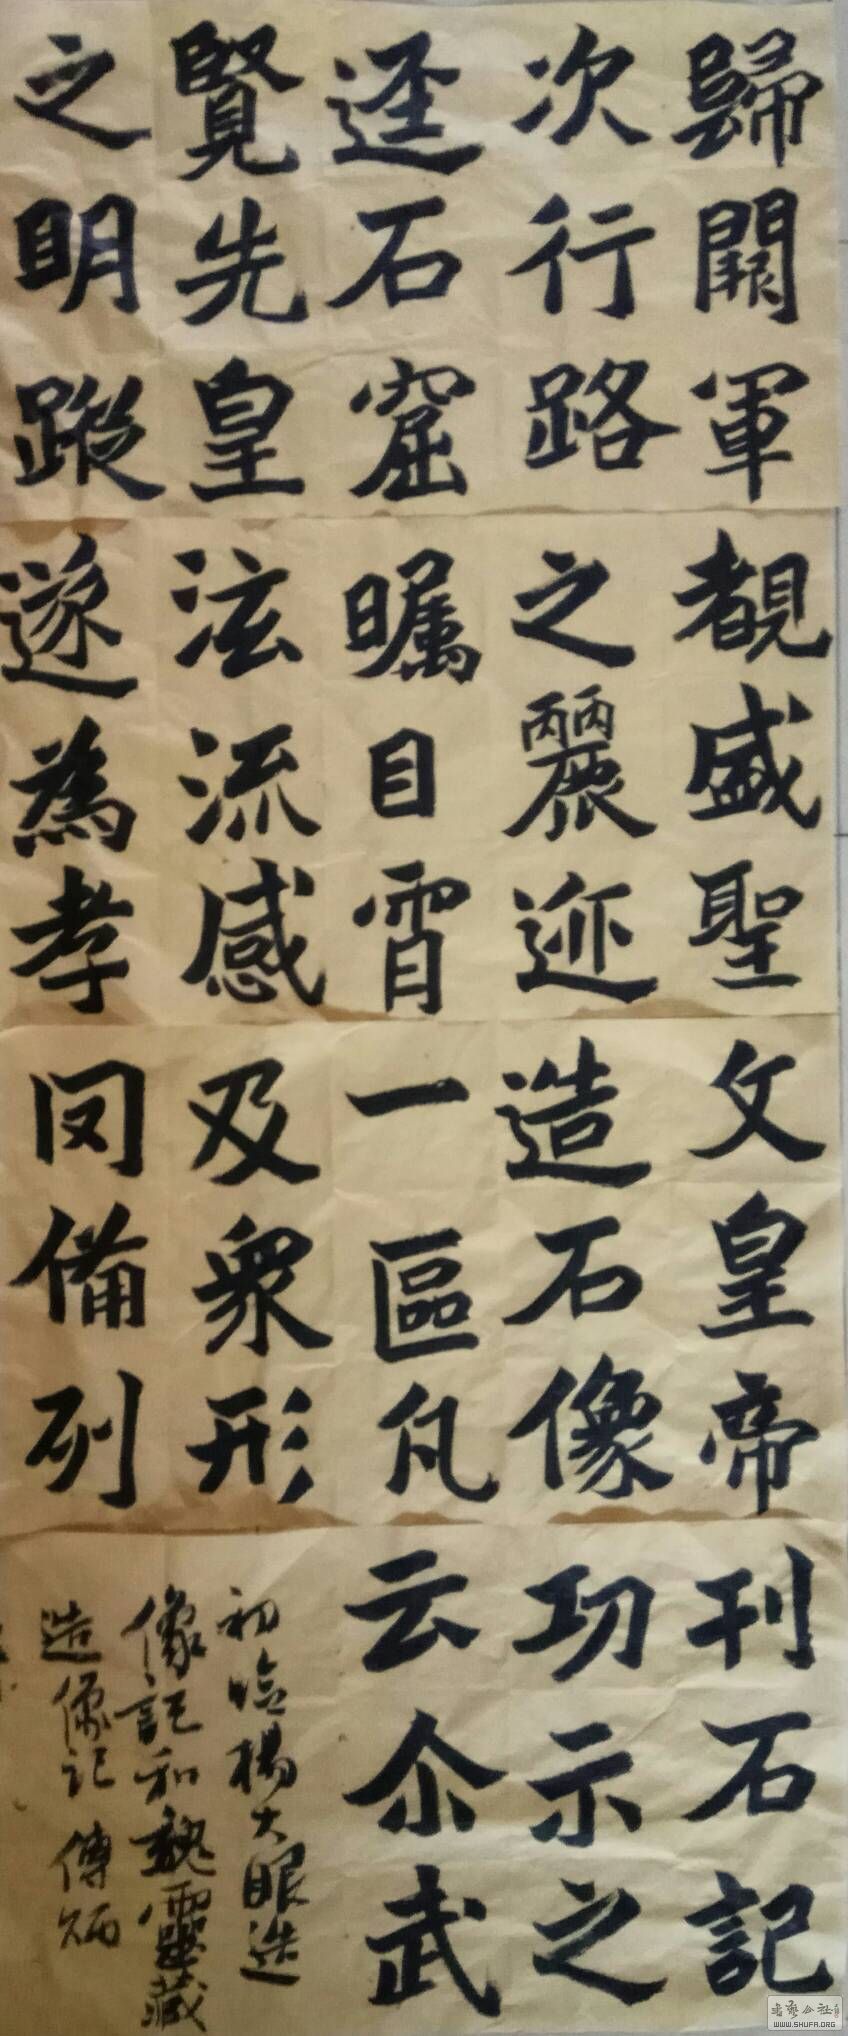 歸闕軍
次行路
逕石窟
覽先皇
之明蹤
覩盛聖
之麗迹
矚目霄
泫流感
遂為孝
文皇帝
造石像
一區凡
及衆形
罔備列
刊石記
功示之
云尒武
初臨楊大眼造
像記和魏靈藏
造像記 傅炳
书艺公社
WWW.SHUFA.ORG